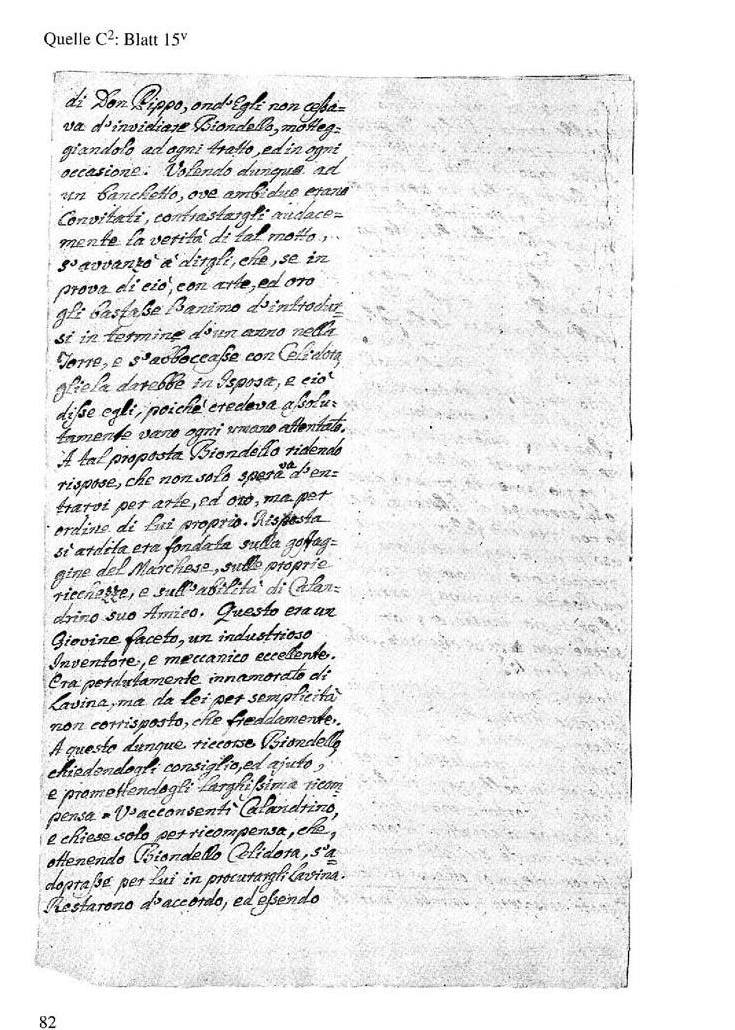 Quelle C²: Blatt 15ᵛ
di Don Pippo, ond'Egli non cessa=
va d'invidiare Biondello, motteg=
giandolo ad ogni tratto, ed in ogni
occasione. Volendo dunque ad
un banchetto, ove ambidue erano
Convitati, contrastargli audace=
mente la verità di tal motto,
s'avvanzò à dirgli, che, se in
prova di ciò, con arte, ed oro
gli bastasse l'animo d'introdur=
si in termine d'un anno nella
Torre, e s'abboccasse con Celidora,
gliela darebbe in Isposa, e ciò
disse egli, poichè credeva assolu=
tamente vano ogni umano attentato.
A tal proposta Biondello ridendo
rispose, che non solo sperava d'en=
trarvi per arte, ed oro, ma per
ordine di lui proprio. Risposta
sì ardita era fondata sulla goffag=
gine del Marchese, sulle proprie
ricchezze, e sull'abilità di Calan=
drino suo Amico. Questo era un
Giovine faceto, un industrioso
Inventore, e meccanico eccellente.
Era perdutamente innamorato di
Lavina, ma da lei per semplicità
non corrisposto, che freddamente.
A questo dunque ricorse Biondello,
chiedendogli consiglio, ed ajuto,
e promettendogli larghissima ricom
pensa. V'acconsentì Calandrino,
e chiese solo per ricompensa, che,
ottenendo Biondello Celidora, s'a=
doprasse per lui in procurargli Lavina.
Restarono d'accordo, ed essendo
82